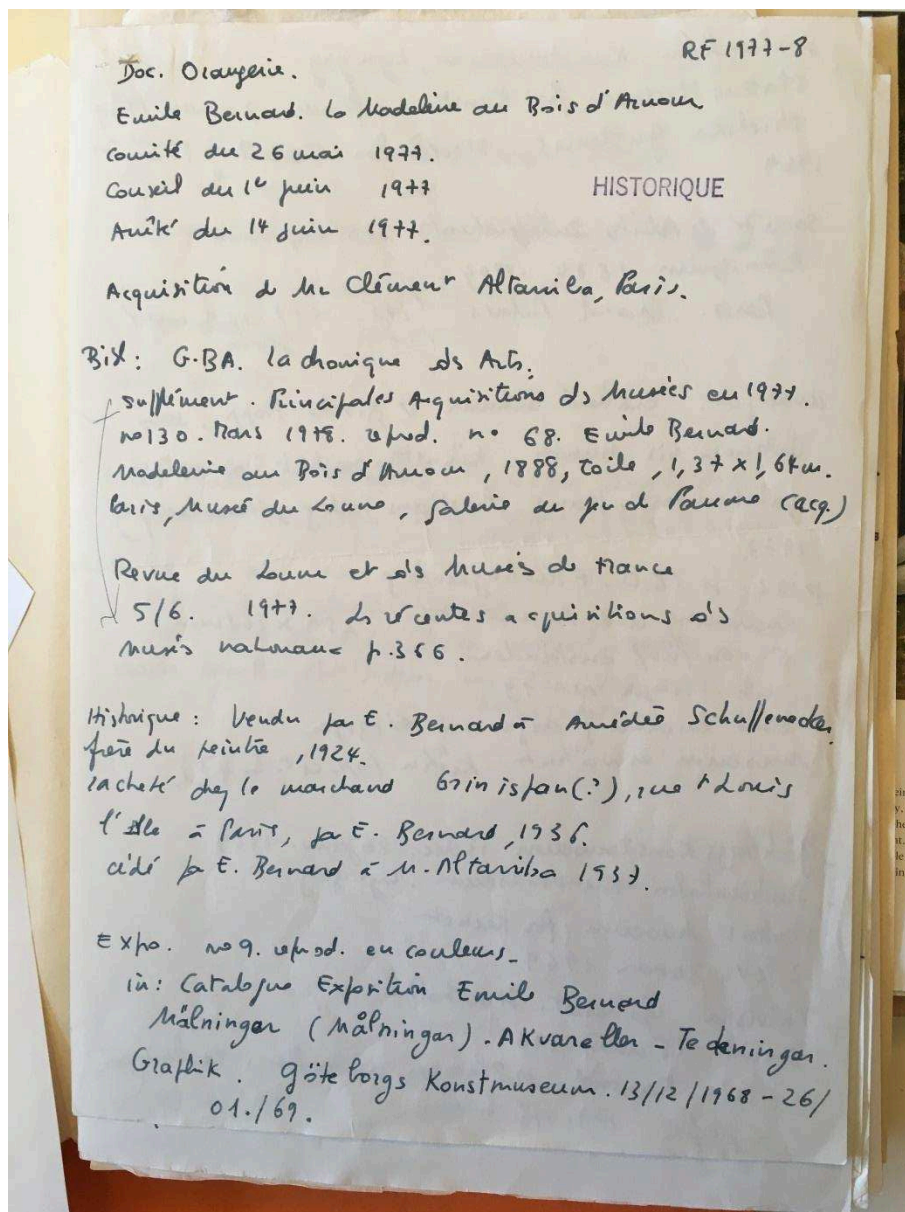 RF 1977-8
Doc. Orangerie.
Emile Bernard. La Madeleine au Bois d'Amour
comité du 26 mai 1977.
Conseil du 1er juin 1977
HISTORIQUE
Arrêté du 14 juin 1977.
Acquisition de Mr Clément Altarriba, Paris.
Bibl: G.BA. la chronique des Arts.
supplément. Principales Acquisitions des Musées en 1977.
no130. Mars 1978. reprod. no 68. Emile Bernard.
Madeleine au Bois d'Amour, 1888, toile, 1,37 x 1,64m.
Paris, Musée du Louvre, Galerie du jeu de Paume (acq.)
Revue du Louvre et des Musées de France
5/6. 1977. Les récentes acquisitions des
musées nationaux p.366.
Historique: Vendu par E. Bernard à Amédée Schuffenecker
frère du peintre, 1924.
racheté chez le marchand Grinispan(?), rue St Louis
l'Ile à Paris, par E. Bernard, 1936.
cédé par E. Bernard à M. Altarriba 1937.
Expo. no 9. reprod. en couleurs_
in: Catalogue Exposition Emile Bernard
Mälningar (Målningar). AKvareller - Teckeningar.
Graphik. Göteborgs Konstmuseum. 13/12/1968 - 26/
01./69.